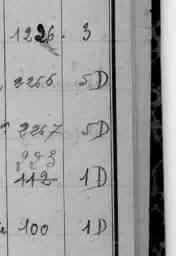 1226. 3
2266 5D
2267 5D
223
112 1D
100 1D